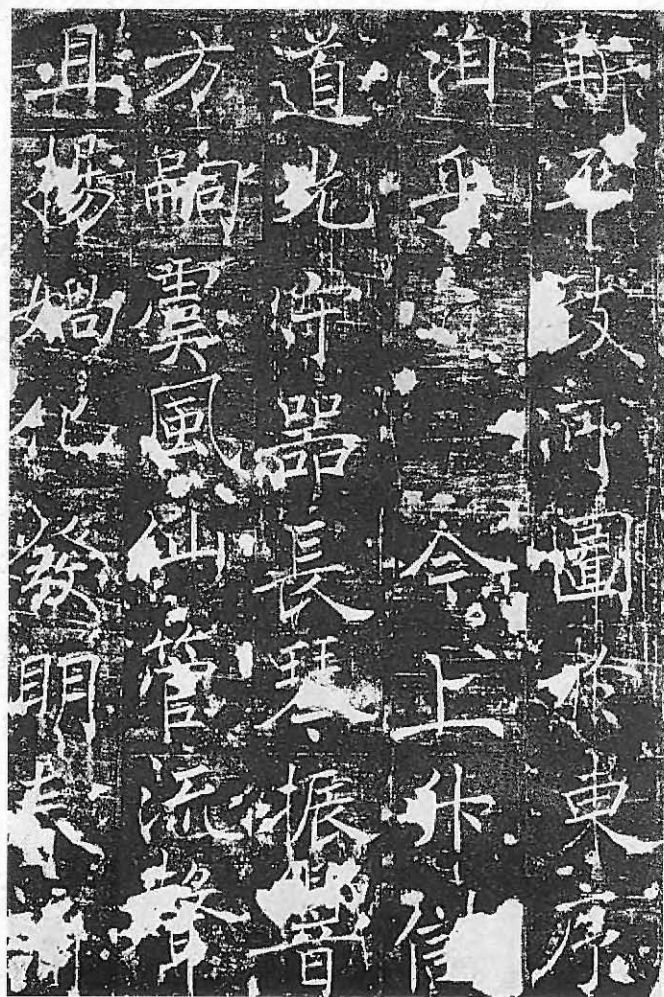 河圖於東序
洎乎今上升儲
道光守器長琴振響
方嗣虞風仙管流聲
且揚媯化發明